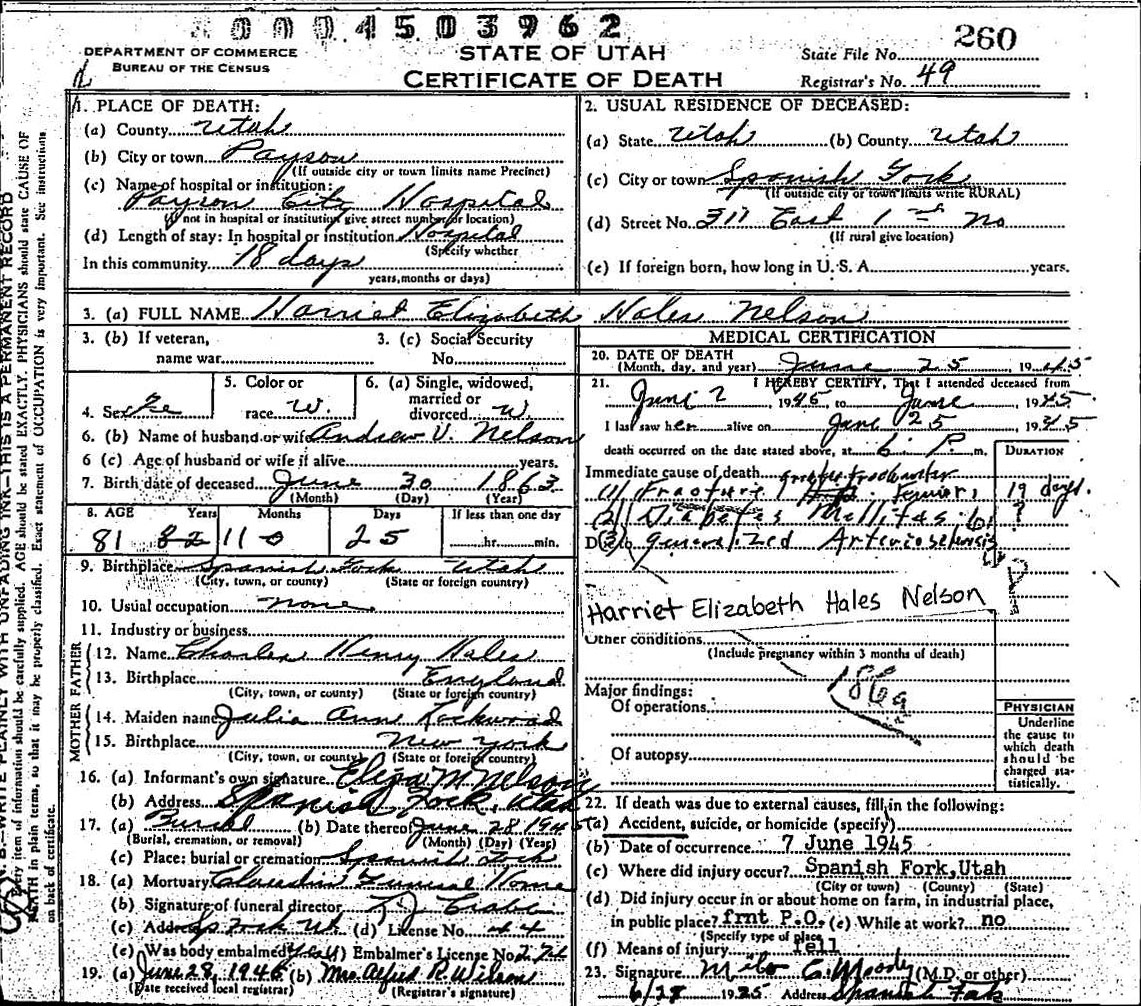 0004503962
DEPARTMENT OF COMMERCE
BUREAU OF THE CENSUS
STATE OF UTAH
CERTIFICATE OF DEATH
State File No. 260
Registrar's No. 49
1. PLACE OF DEATH:
(a) County Utah
(b) City or town Payson
(If outside city or town limits name Precinct)
(c) Name of hospital or institution:
Payson City Hospital
(If not in hospital or institution give street number or location)
(d) Length of stay: In hospital or institution Hospital
(Specify whether
In this community 18 days
years, months or days)
2. USUAL RESIDENCE OF DECEASED:
(a) State Utah (b) County Utah
(c) City or town Spanish Fork
(If outside city or town limits write RURAL)
(d) Street No. 311 East 1 st No
(If rural give location)
(e) If foreign born, how long in U. S. A. years.
3. (a) FULL NAME Harriet Elizabeth Hales Nelson
3. (b) If veteran,
name war
3. (c) Social Security
No.
4. Sex Fe
5. Color or
race W.
6. (a) Single, widowed,
married or
divorced W
6. (b) Name of husband or wife Andrew V. Nelson
6 (c) Age of husband or wife if alive years.
7. Birth date of deceased June 30 1863
(Month) (Day) (Year)
8. AGE Years Months Days If less than one day
81 82 11 0 25 hr. min.
9. Birthplace Spanish Fork Utah
(City, town, or county) (State or foreign country)
10. Usual occupation none
11. Industry or business
FATHER
12. Name Charles Henry Hales
13. Birthplace England
(City, town, or county) (State or foreign country)
MOTHER
14. Maiden name Julia Ann Lockwood
15. Birthplace New York
(City, town, or county) (State or foreign country)
16. (a) Informant's own signature Eliza M Nelson
(b) Address Spanish Fork, Utah
17. (a) Burial (b) Date thereof June 28 1945
(Burial, cremation, or removal) (Month) (Day) (Year)
(c) Place: burial or cremation Spanish Fork
18. (a) Mortuary Claudin Funeral Home
(b) Signature of funeral director
(c) Address Sp Fork Ut (d) License No. 44
(e) Was body embalmed yes (f) Embalmer's License No.
19. (a) June 28, 1945 (b) Mrs Alfred R. Wilson
(Date received local registrar) (Registrar's signature)
MEDICAL CERTIFICATION
20. DATE OF DEATH
(Month, day, and year) June 25, 1945
21. I HEREBY CERTIFY, That I attended deceased from
June 2, 1945, to June 1945
I last saw her alive on June 25, 1945
death occurred on the date stated above, at 6: P. m.
DURATION
Immediate cause of death
(1) Fracture femur, 19 days.
(2) Diabetes Mellitas ?
Due (3) generalized Arteriosclerosis ?
Harriet Elizabeth Hales Nelson
Other conditions
(Include pregnancy within 3 months of death)
186a
Major findings:
Of operations
Of autopsy
PHYSICIAN
Underline
the cause to
which death
should be
charged sta-
tistically.
22. If death was due to external causes, fill in the following:
(a) Accident, suicide, or homicide (specify)
(b) Date of occurrence 7 June 1945
(c) Where did injury occur? Spanish Fork, Utah
(City or town) (County) (State)
(d) Did injury occur in or about home on farm, in industrial place,
in public place? frnt P.O. (e) While at work? no
(Specify type of place
(f) Means of injury fell
23. Signature Milo C. Moody (M.D. or other)
6/28 1945 Address Spanish Fork
N. B.—WRITE PLAINLY WITH UNFADING INK—THIS IS A PERMANENT RECORD
Every item of information should be carefully supplied. AGE should be stated EXACTLY. PHYSICIANS should state CAUSE OF
DEATH in plain terms, so that it may be properly classified. Exact statement of OCCUPATION is very important. See instructions
on back of certificate.